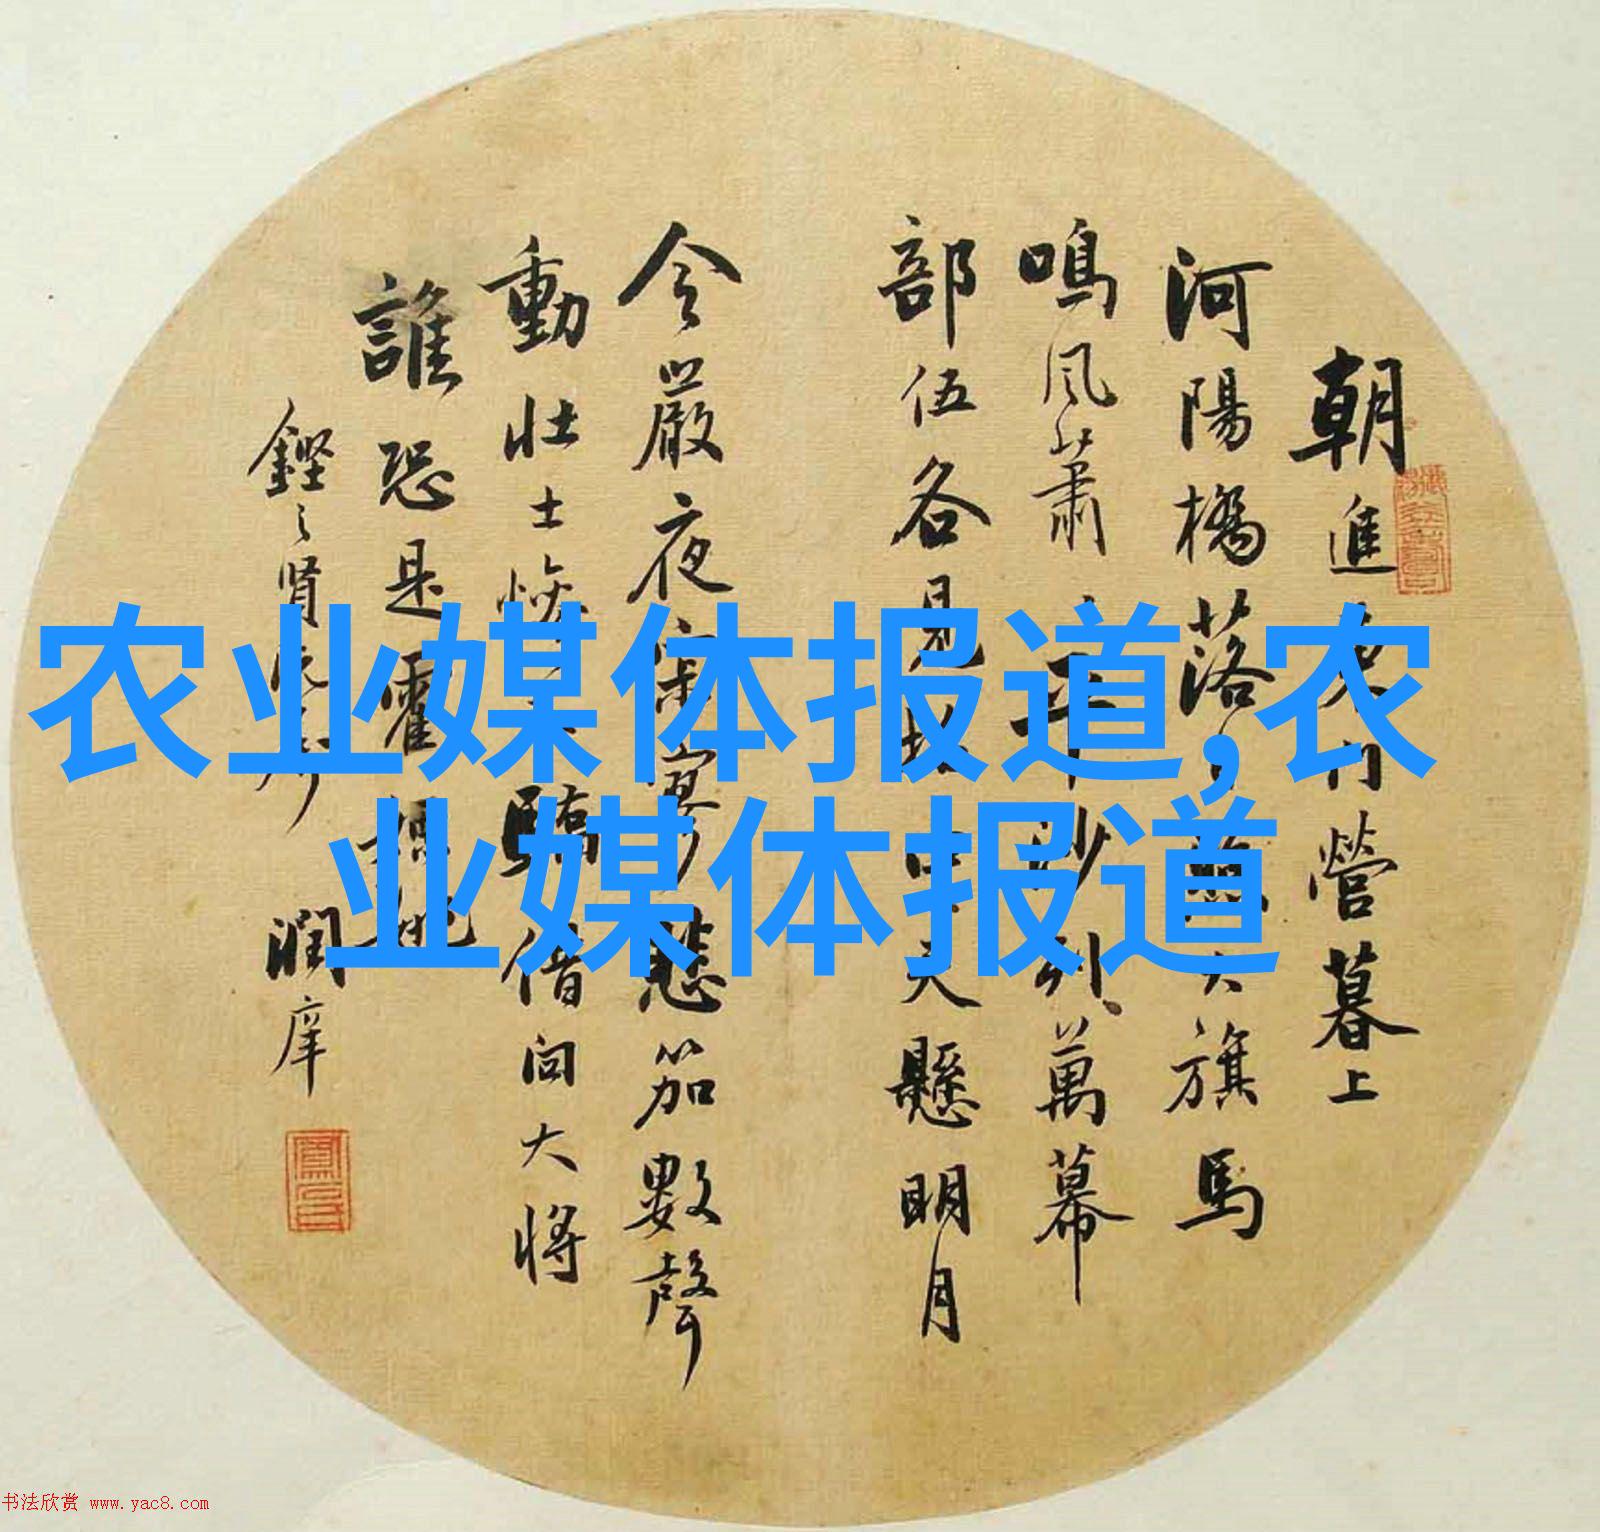 农业媒体报道,农
业媒体报道
朝進東門營暮上
河陽橋落日照大旗馬
鳴風蕭平沙列萬幕
部伍各見招中天懸明月
令嚴夜寂寥悲笳數聲
動壯士慘不驕借問大將
誰恐是霍嫖姚
潤庠
书法欣赏 www.yac8.com